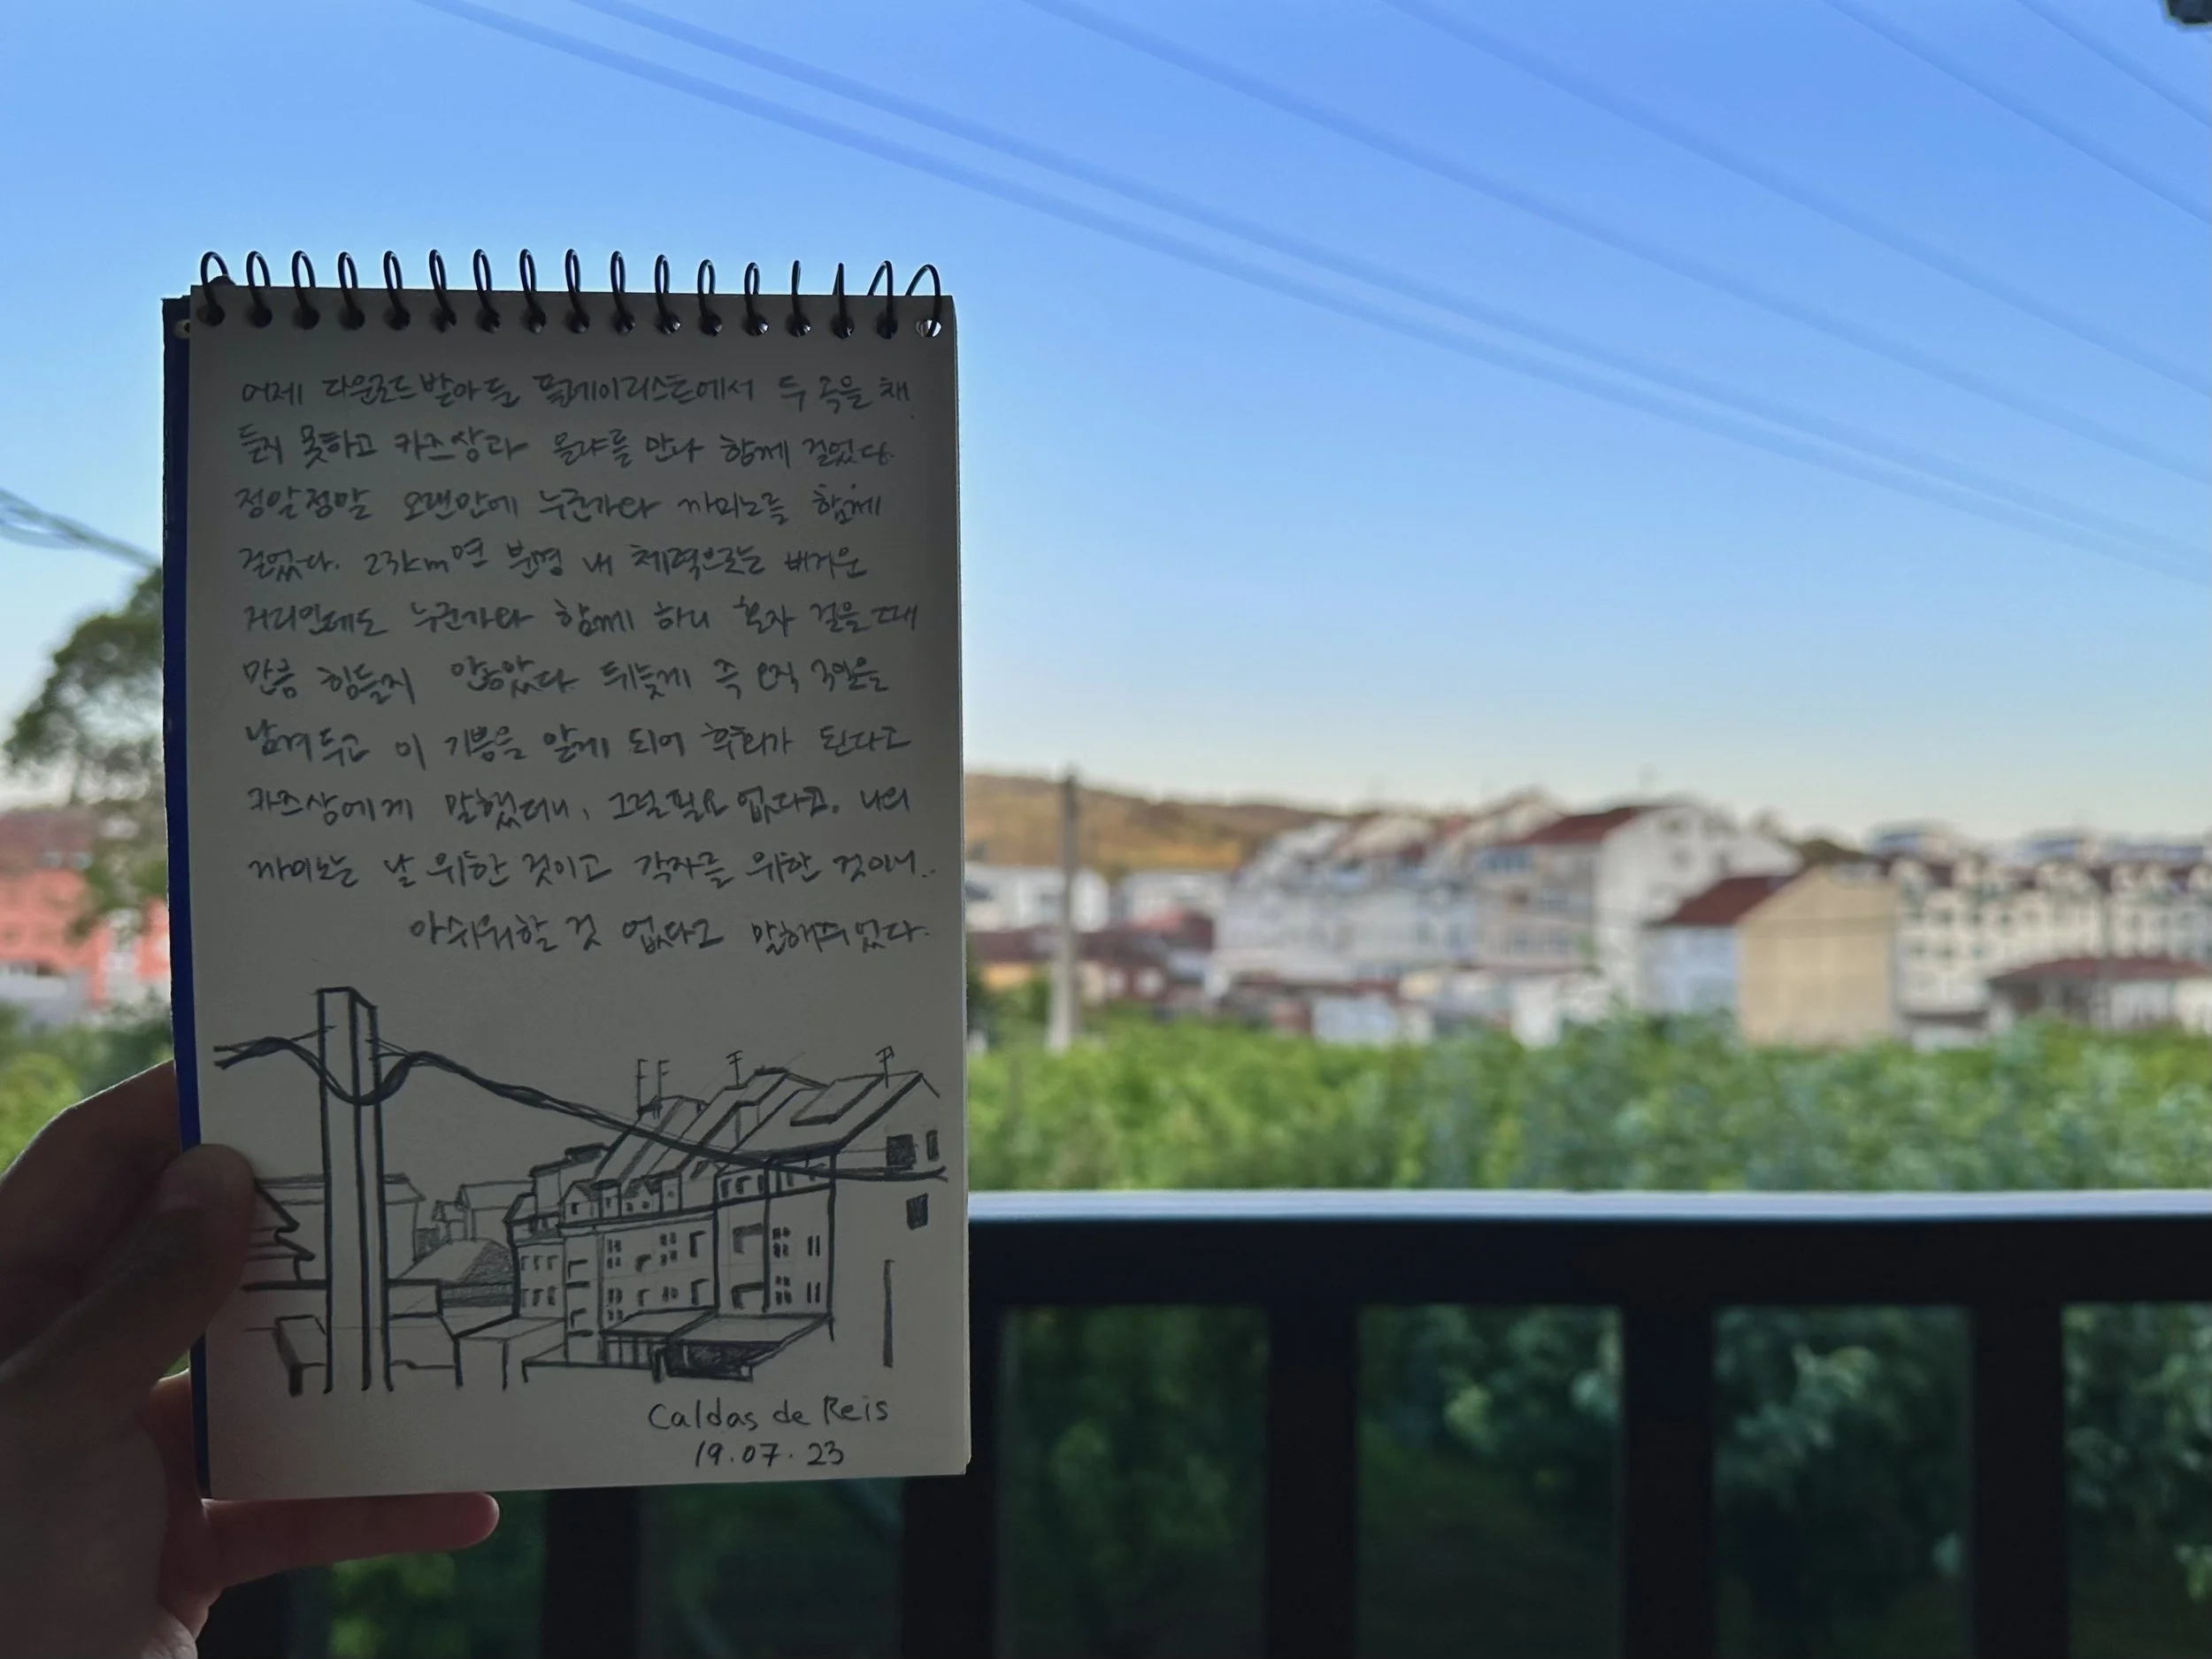 어제 다운로드받아둔 플레이리스트에서 두 곡을 채
듣지 못하고 카즈상과 를 만나 함께 걸었다.
정말정말 오랜만에 누군가와 까미노를 함께
걸었다. 23km면 분명 내 체력으로는 버거운
거리인데도 누군가와 함께 하니 혼자 걸을 때
만큼 힘들지 않았다. 뒤늦게 즉 오직 3일을
남겨두고 이 기쁨을 알게 되어 후회가 된다고
카즈상에게 말했더니, 그럴 필요 없다고. 나의
까미노는 날 위한 것이고 각자를 위한 것이니..
아쉬워할 것 없다고 말해주었다.
Caldas de Reis
19.07.23